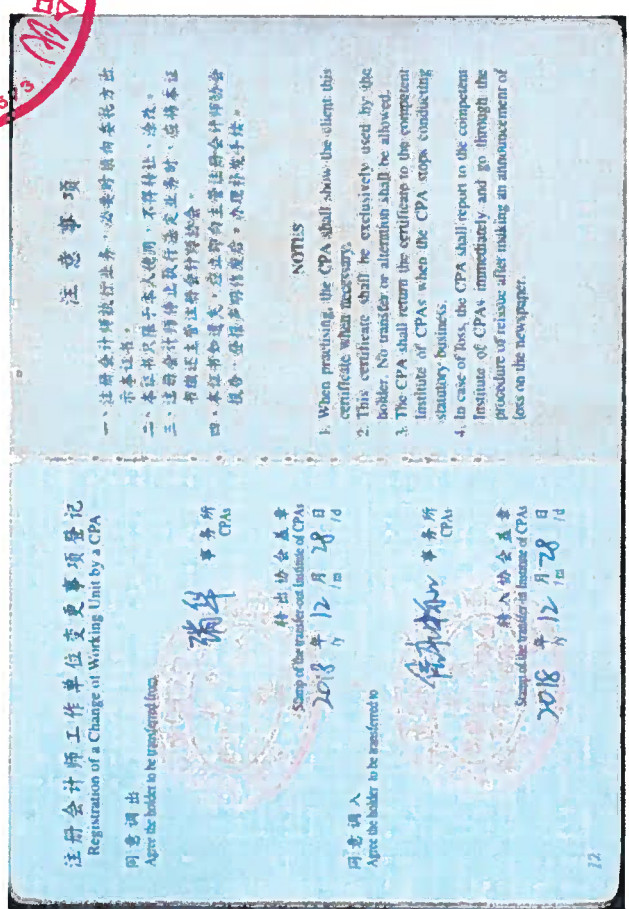 注册会计师工作单位变更事项登记
Registration of a Change of Working Unit by a CPA
同意调出
Agree the holder to be transferred from
瑞华 事务所
CPAs
转出协会盖章
Stamp of the transfer-out Institute of CPAs
2018 年 12 月 28 日
/y /m /d
同意调入
Agree the holder to be transferred to
事务所
CPAs
转入协会盖章
Stamp of the transfer-in Institute of CPAs
2018 年 12 月 28 日
/y /m /d
12
注意事项
一、注册会计师执行业务,必要时须向委托方出
示本证书。
二、本证书只限于本人使用,不得转让、涂改。
三、注册会计师停止执行法定业务时,应将本证
书缴还主管注册会计师协会。
四、本证书如遗失,应立即向主管注册会计师协会
报告,登报声明作废后,办理补发手续。
NOTES
1. When practising, the CPA shall show the client this
certificate when necessary.
2. This certificate shall be exclusively used by the
holder. No transfer or alteration shall be allowed.
3. The CPA shall return the certificate to the competent
Institute of CPAs when the CPA stops conducting
statutory business.
4. In case of loss, the CPA shall report to the competent
Institute of CPAs immediately and go through the
procedure of reissue after making an announcement of
loss on the newspaper.